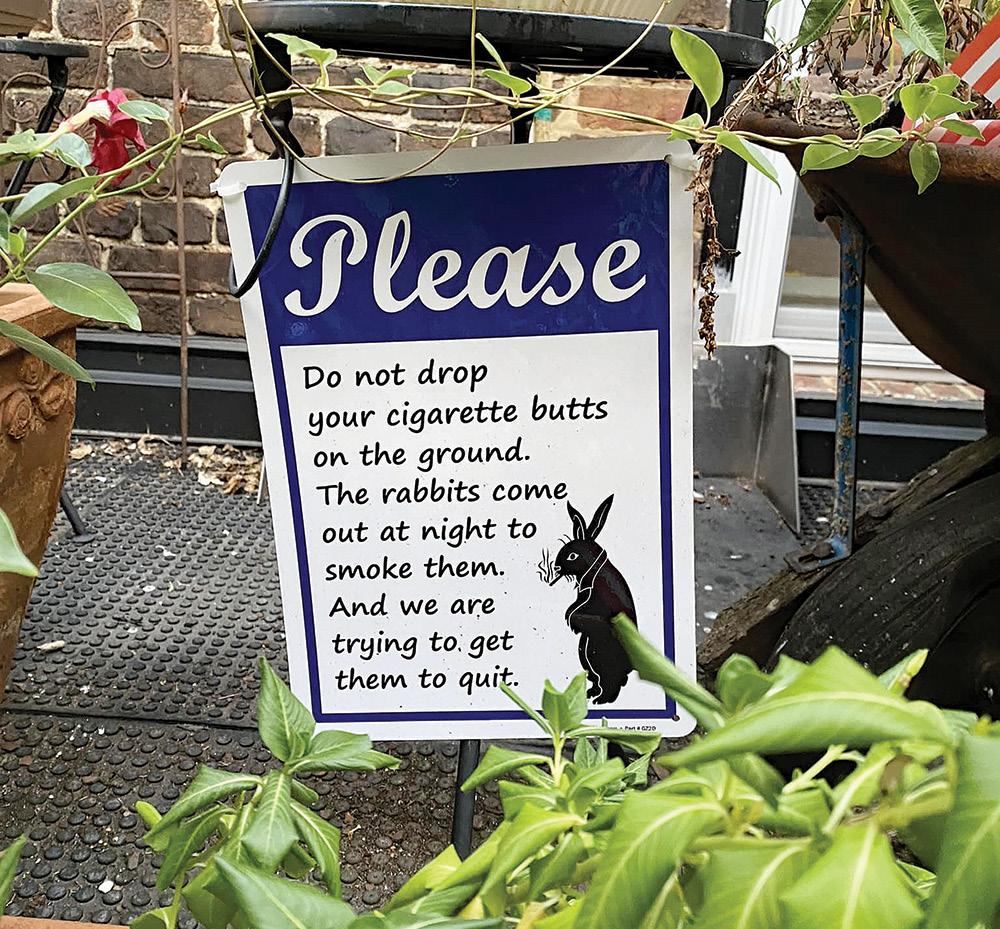 Please
Do not drop
your cigarette butts
on the ground.
The rabbits come
out at night to
smoke them.
And we are
trying to get
them to quit.
Part # G220